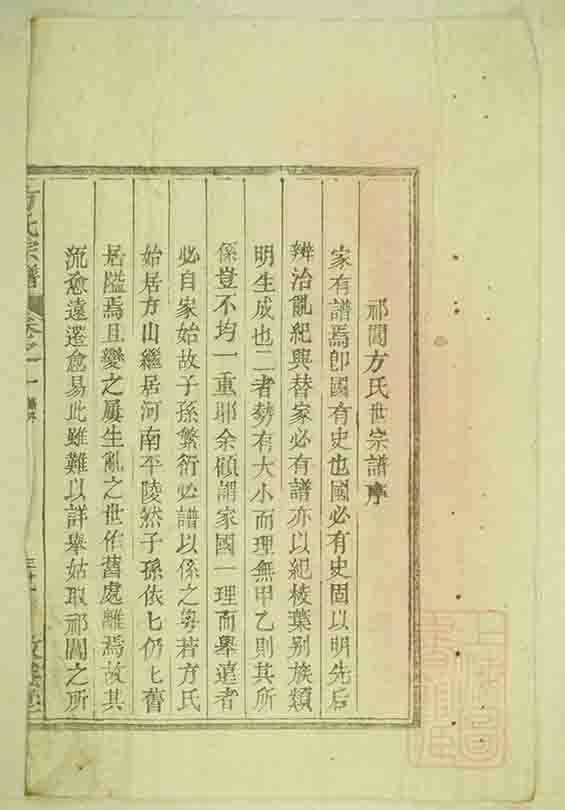 祁閶方氏世宗譜序
家有譜焉即國有史也國必有史固以明先后
辨治亂紀興替家必有譜亦以紀枝葉别族類
明生成也二者勢有大小而理無甲乙則其所
係豈不均一重耶余顧謂家國一理而舉遠者
必自家始故子孫繁衍必譜以係之寧若方氏
始居方山繼居河南平陵然子孫依匕仍匕舊
居隘焉且變之屢生亂之世作舊處離焉故其
流愈遠遷愈易此雖難以詳舉姑取祁閶之所
方氏宗譜 卷之一
上海圖書館